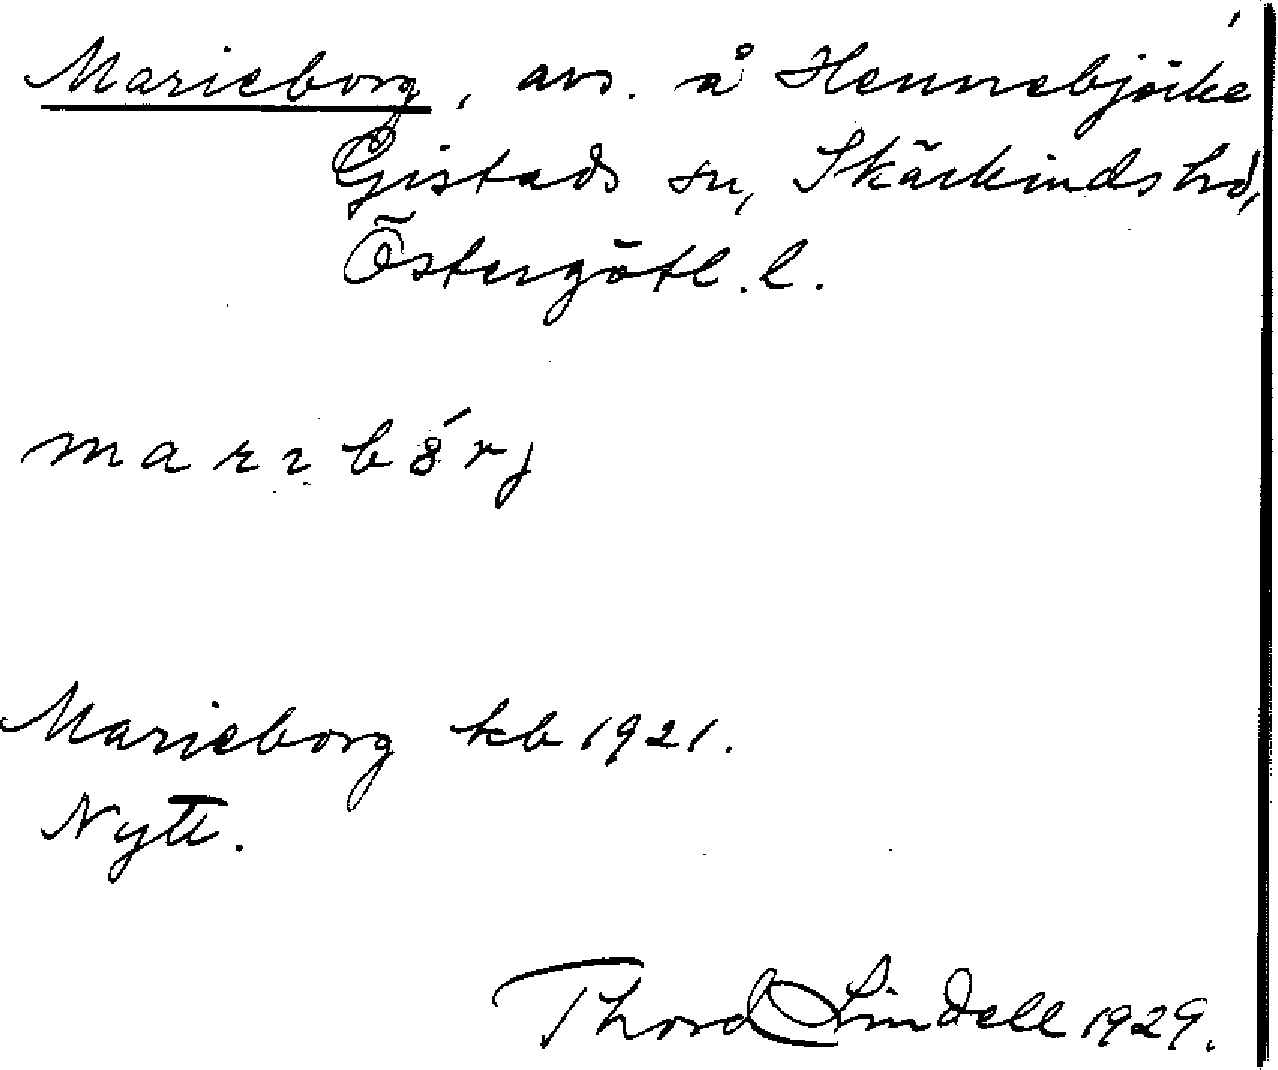 Marieborg, avs. å Hennebjörke
Gistads sn, Skärkinds hd,
Östergötl. l.
Marieborg kb 1921.
Nytt.
Thord Lindell 1929.